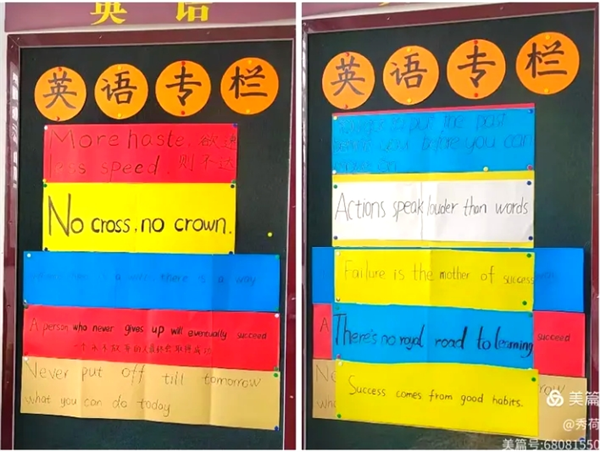 英语
英语专栏
More haste, 欲速
less speed. 则不达
No cross, no crown.
there is a way
A person who never gives up will eventually succeed
Never put off till tomorrow
what you can do today
英语专栏
put the past
before you can
Actions speak louder than words
Failure is the mother of success
There's no royal road to learning
succeed
Success comes from good habits.
美篇
@秀荷
美篇号:68081550